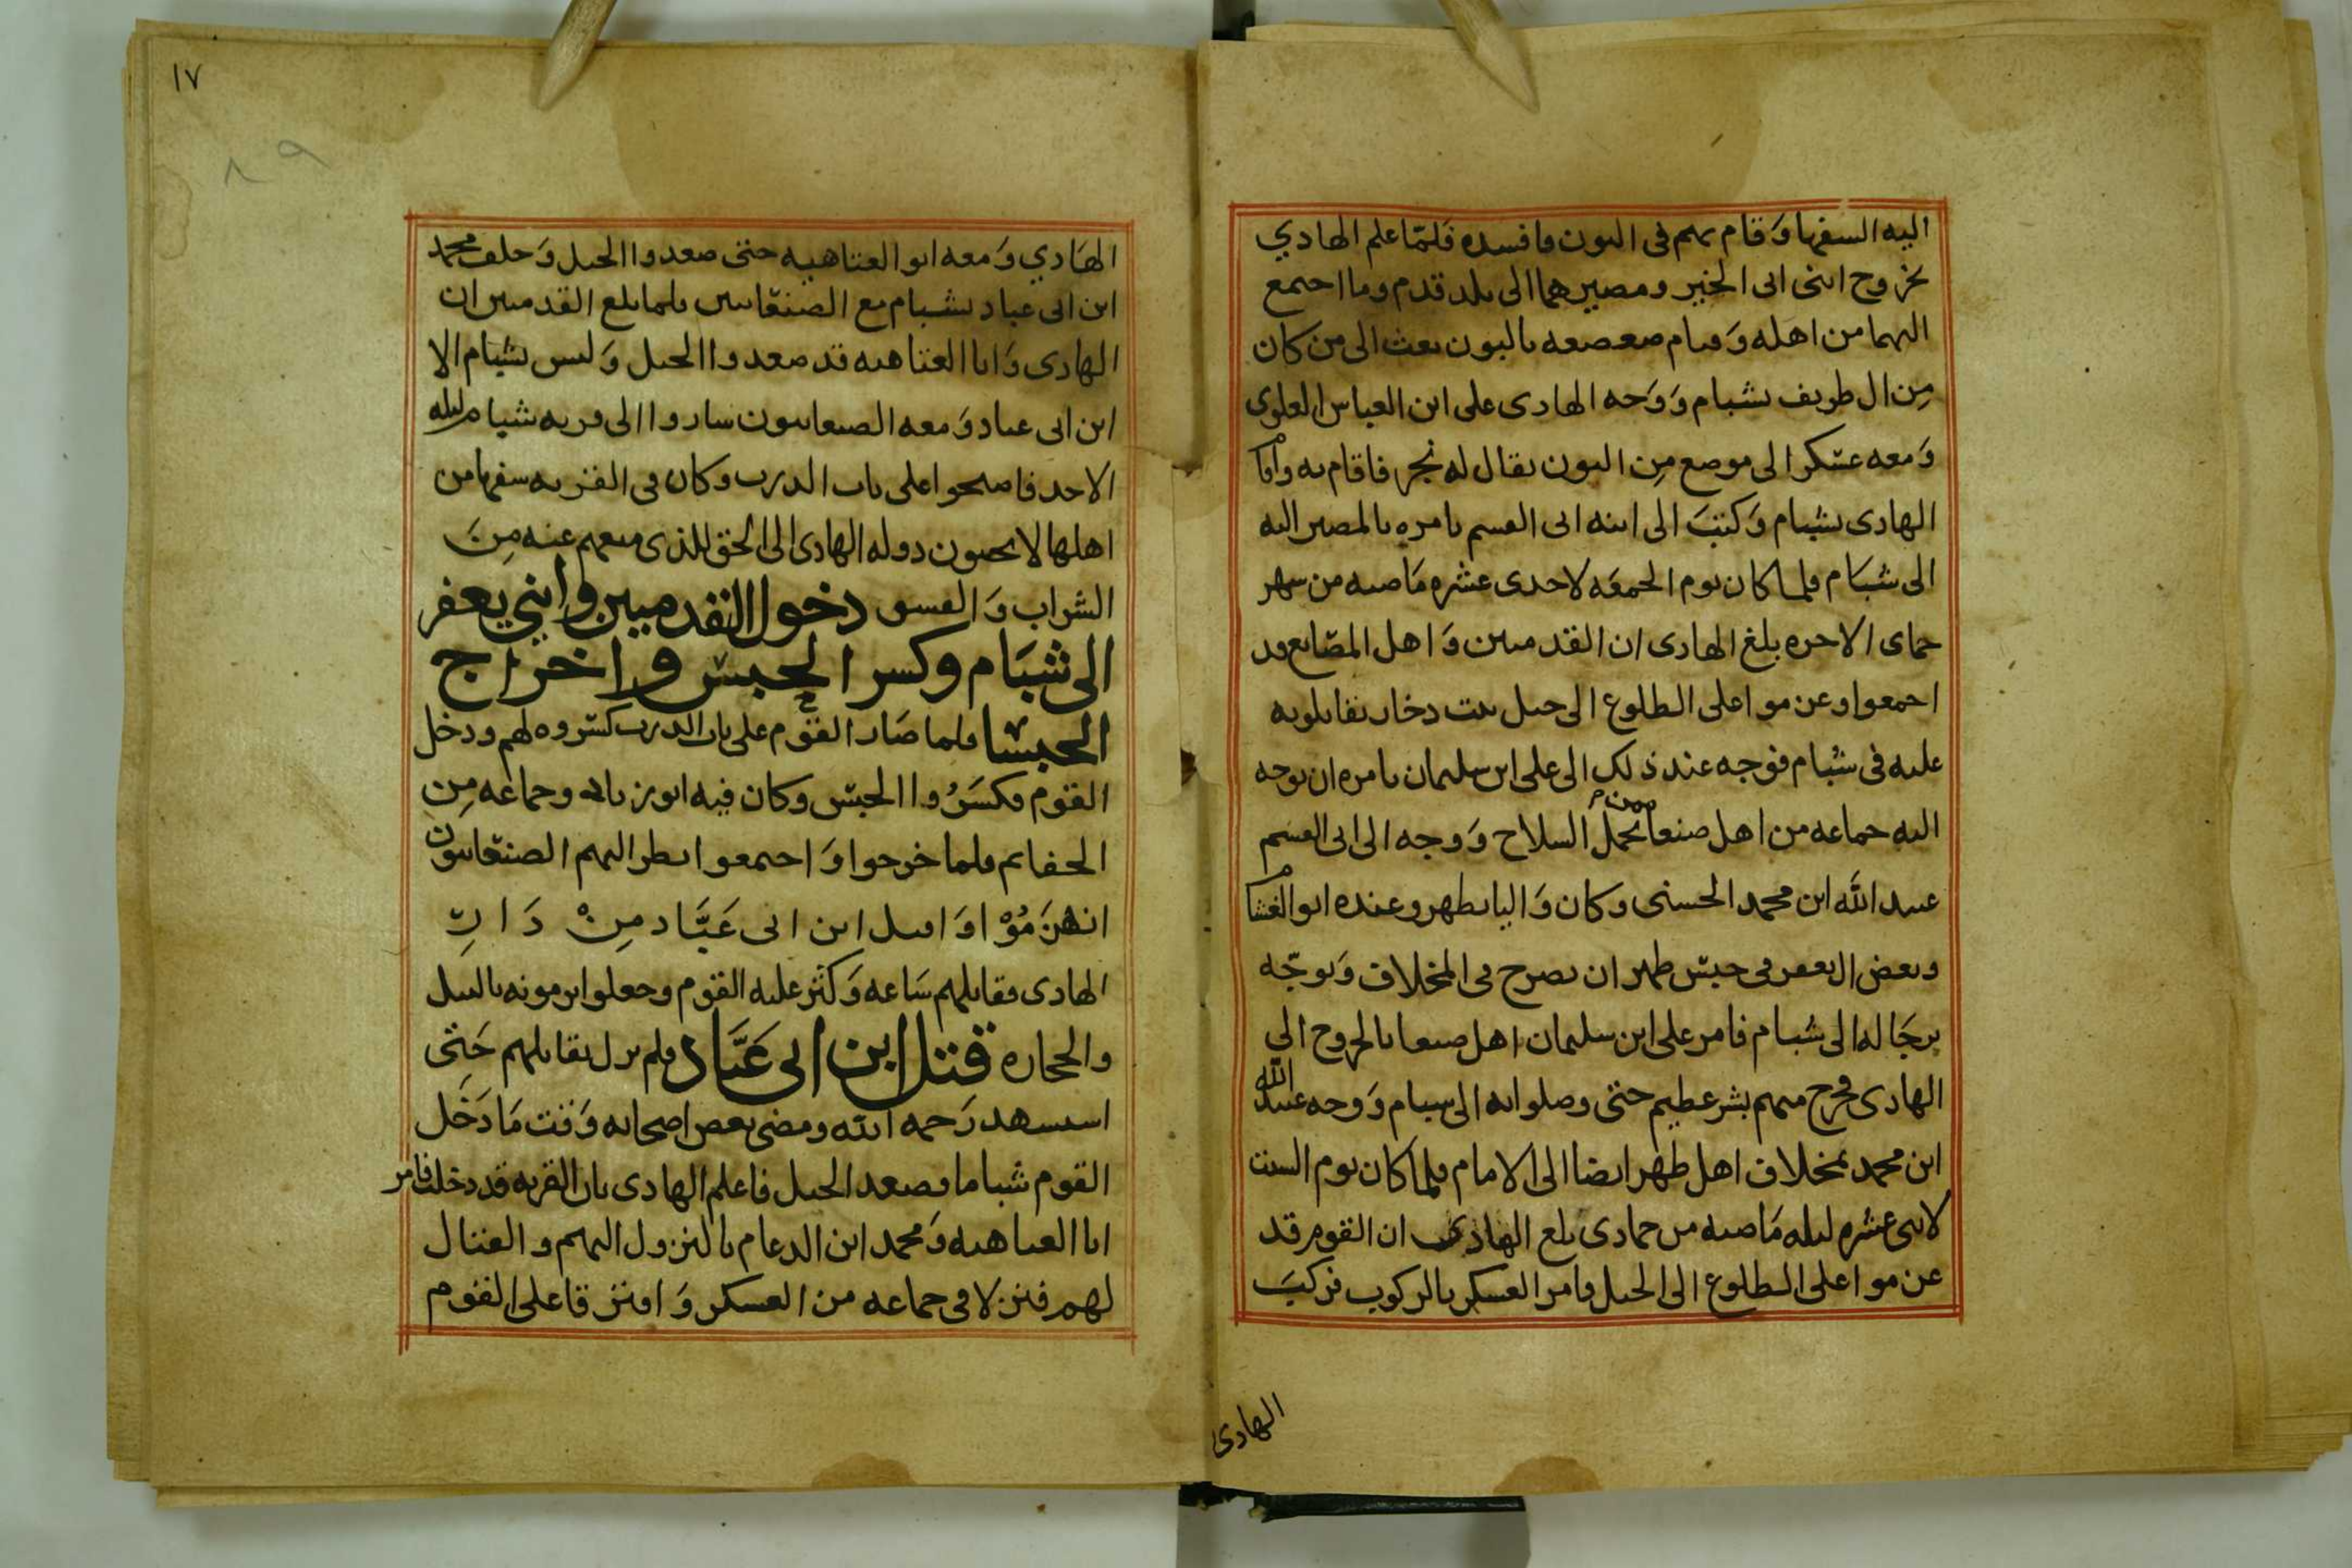 اليه السفها وَقام بهم فى البون فافسده فلمّا علم الهادي
بخروج ابنى ابى الخير ومصيرهما الى بلد قدم وما اجتمع
اليهما من اهله وَقيام صعصعه بالبون بعث الى من كان
مِن ال طريف بشبام وَوَجه الهادى على ابن العباس العلوى
وَمعه عسكر الى موضع مِن البون يقال له نجر فاقام به واقام
الهادى بشبام وَكتبَ الى ابنه ابى القسم يامره بالمصير اليه
الى شبَام فلما كان يوم الجمعَه لاحدى عشره مَاضيه من شهر
جماى الاخره بلغ الهادى ان القدميين وَاهل المصَانع قد
اجمعوا وعن موا على الطلوع الى جبل بيت دخار يقاتلونه
عليه فى شبام فوجه عند ذلك الى على ابن سليمان يامره ان يوجه
اليه جماعه من اهل صنعا ممن يحمل السلاح وَوجه الى ابى القسم
عبيد الله ابن محمد الحسنى وكان وَاليا بظهر وعنده ابوا الغشام
وبعض ال يعفر فى حبس ظهر ان يصرح فى المخلاف وَيوجّه
برجَاله الى شبام فامر على ابن سليمان اهل صنعا بالخروج الي
الهادى فخرج منهم بشر عظيم حتى وصلوا به الى شبام وَوجه عبيد الله
ابن محمد بمخلاف اهل ظهر ايضا الى الامام فلما كان يوم السبت
لاثنى عشره ليله مَاضيه من جمادى بلغ الهادى ان القوم قد
عن موا على الطلوع الى الجبل فامر العسكر بالركوب فركبَ
الهادى
١٧
٨٩
الهَادي وَمعه ابو العتاهيه حتى صعدوا الجبل وَخلف محمد
ابن ابى عباد بشبام مع الصنعَانيين فلما بلغ القدميين ان
الهادى وَابا العتاهيه قد صعدوا الجبل وَليس بشبام الا
ابن ابى عباد وَمعه الصنعانيون ساروا الى قريه شبام ليله
الاحد فاصبحوا على باب الدرب وكان فى القريه سفها من
اهلها لا يحبون دوله الهادى الى الحق للذى منعهم عنه مِنَ
الشراب وَالفسق دخول القدميين وابني يعفر
الى شبَام وكسر الحبس واخراج
الحبسا فلما صَار القوم على باب الدرب كسروه لهم ودخل
القوم فكسَرُوا الحبس وكان فيه ابو زياد وجماعه مِن
الحفاتم فلما خرجوا وَاجتمعوا نظر اليهم الصنعانيون
انهزَمُوْا وَاقبل ابن ابى عَبَّاد مِنْ دَارِ
الهادى فقاتلهم سَاعه وَكثر عليه القوم وجعلوا يرمونه بالنبل
والحجاره قتل ابن ابى عَبَّاد فلم يزل يقاتلهم حَتى
استشهد رَحمه الله ومضى بعض اصحابه وَقت مَا دَخَل
القوم شباما فصعد الجبل فاعلم الهادى بان القريه قد دخلت فامر
ابا العتاهيه وَمحمد ابن الدعام بالنزول اليهم والقتال
لهم فنزلا فى جماعه من العسكر وَافترقا على القوم